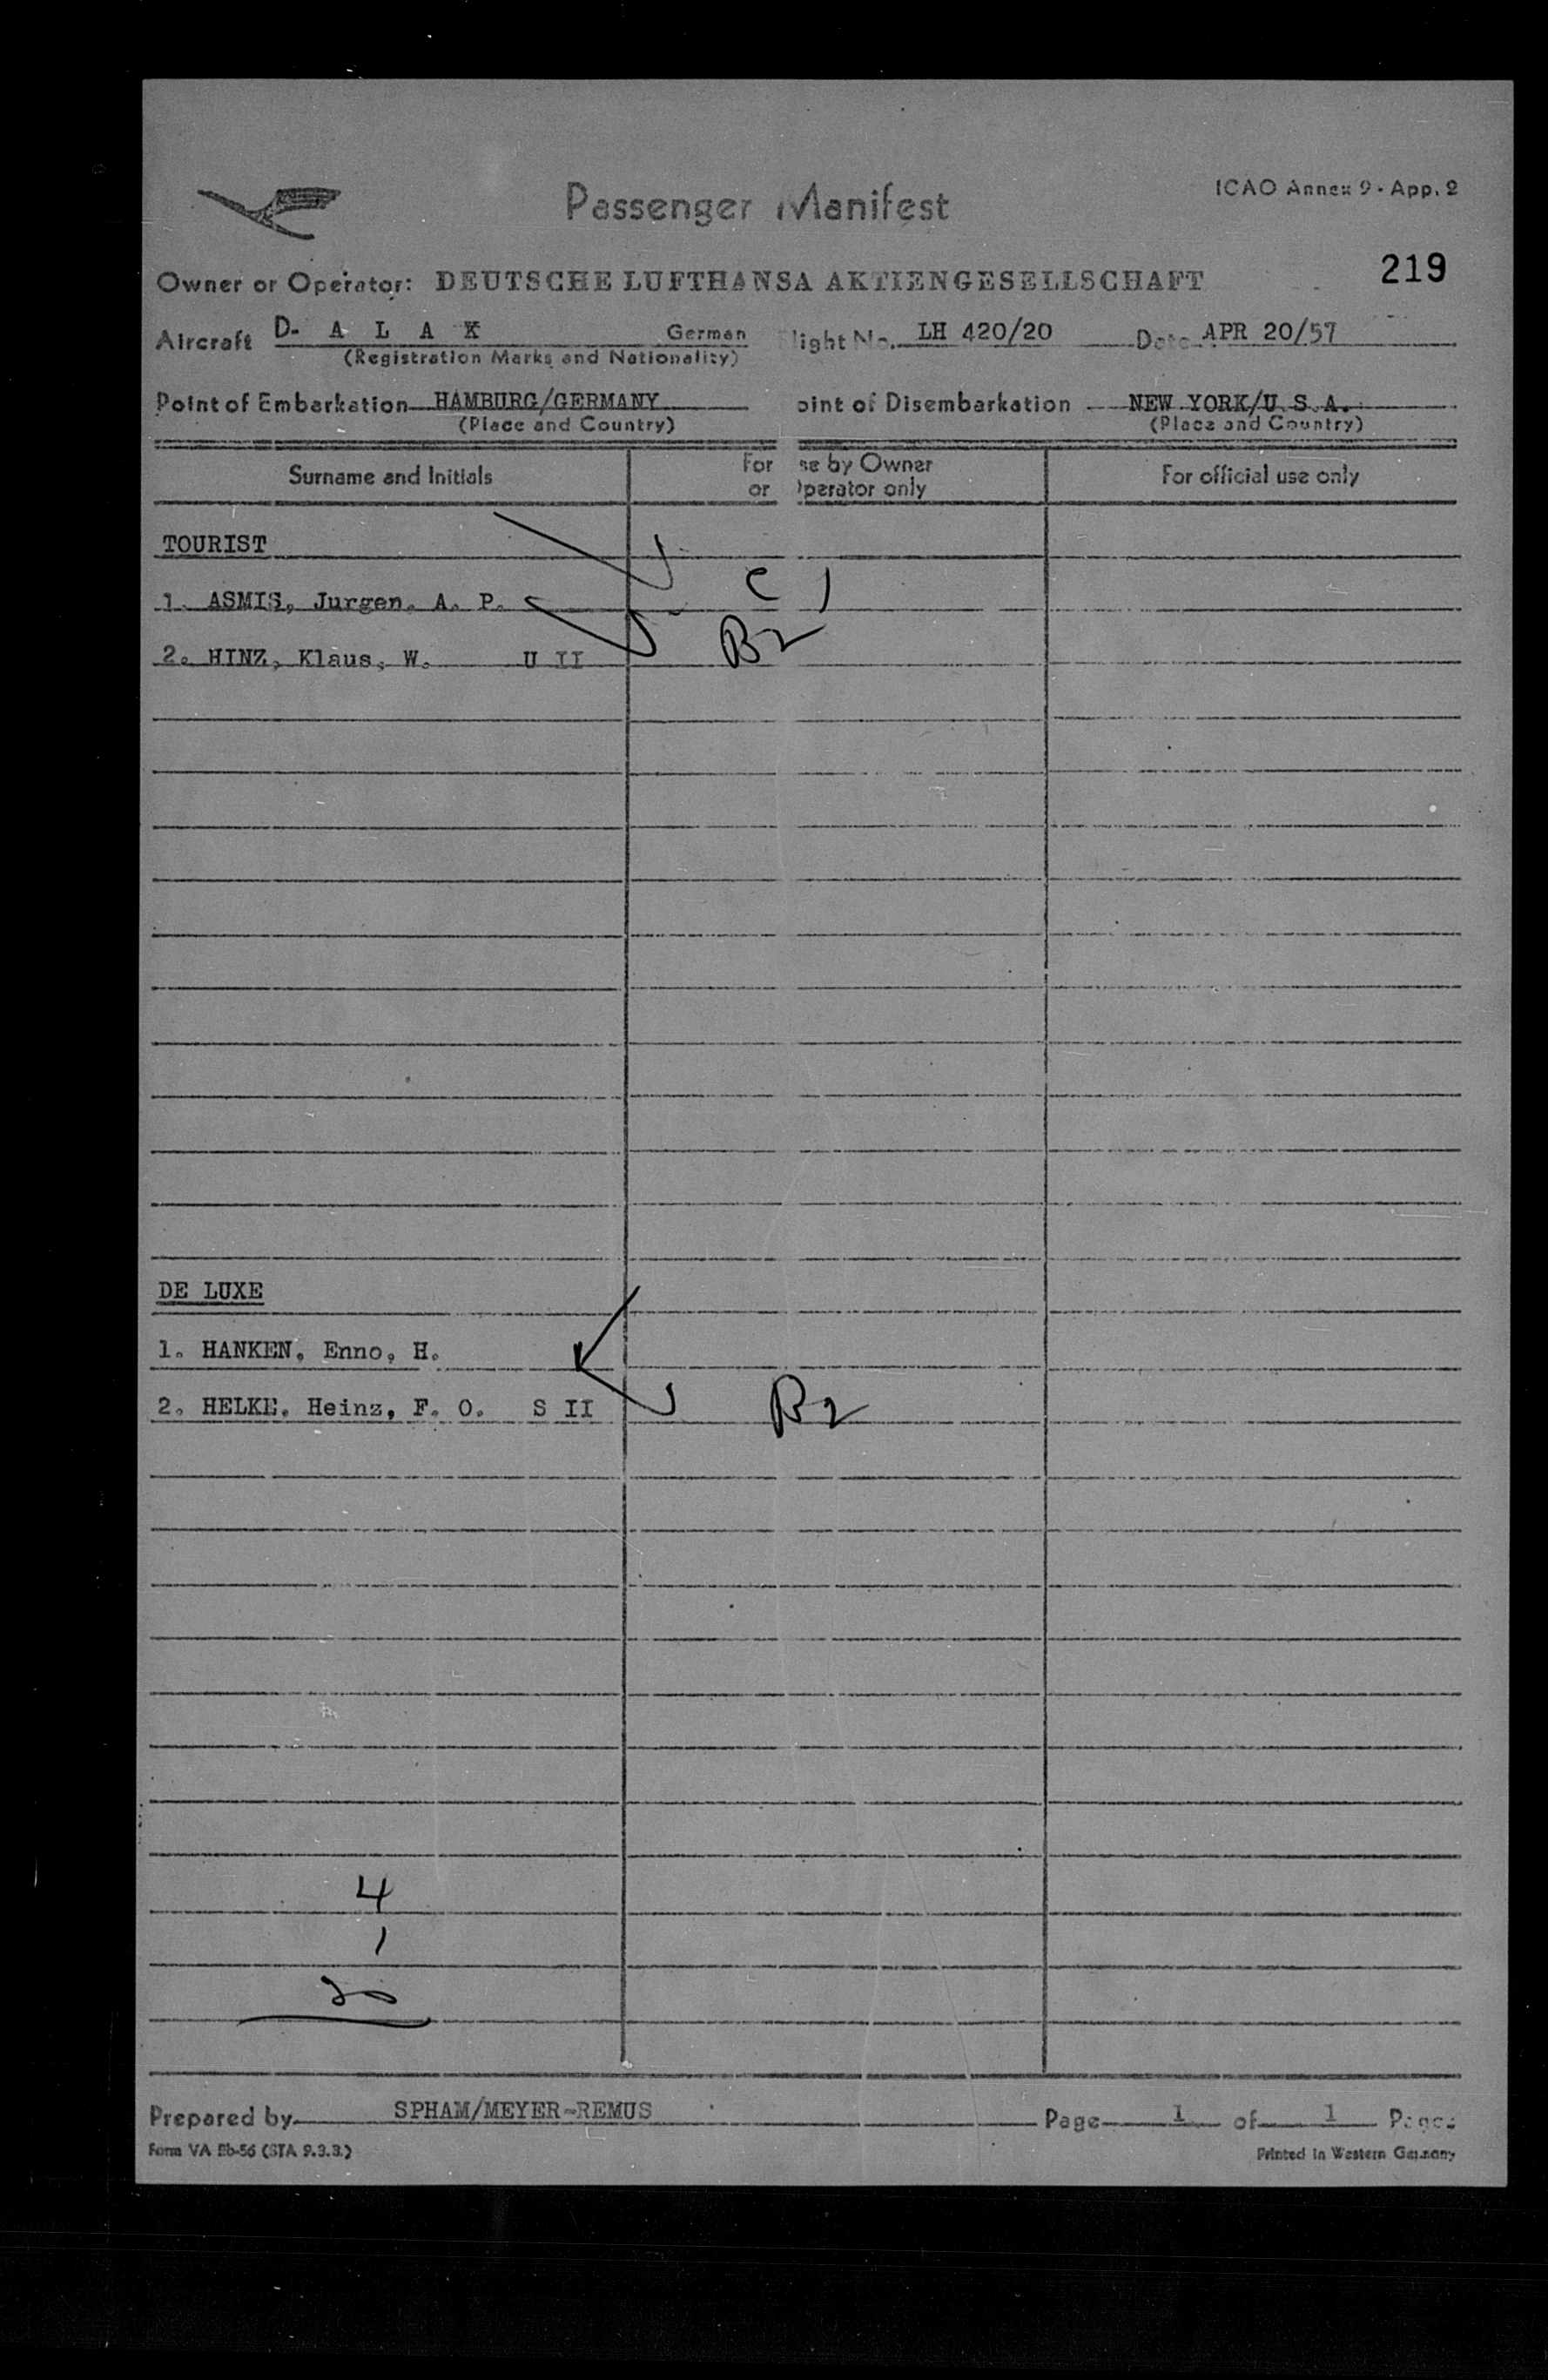 Passenger Manifest
ICAO Annex 9 - App. 2
219
Owner or Operator: DEUTSCHE LUFTHANSA AKTIENGESELLSCHAFT
Aircraft D- A L A K German light No. LH 420/20 Date APR 20/57
(Registration Marks and Nationality)
Point of Embarkation HAMBURG/GERMANY oint of Disembarkation NEW YORK/U.S.A.
(Place and Country) (Place and Country)
Surname and Initials For se by Owner For official use only
or perator only
TOURIST
1. ASMIS, Jurgen, A. P. C 1
2. HINZ, Klaus, W. U II B2
DE LUXE
1. HANKEN, Enno, H.
2. HELKE, Heinz, F. O. S II B2
4
1
20
Prepared by SPHAM/MEYER-REMUS Page 1 of 1 Pages
Form VA Bb-56 (STA 9.3.3.) Printed in Western Germany